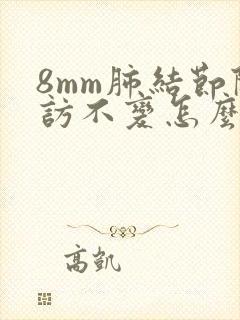 8mm肺結節
訪不變怎麼
高凱